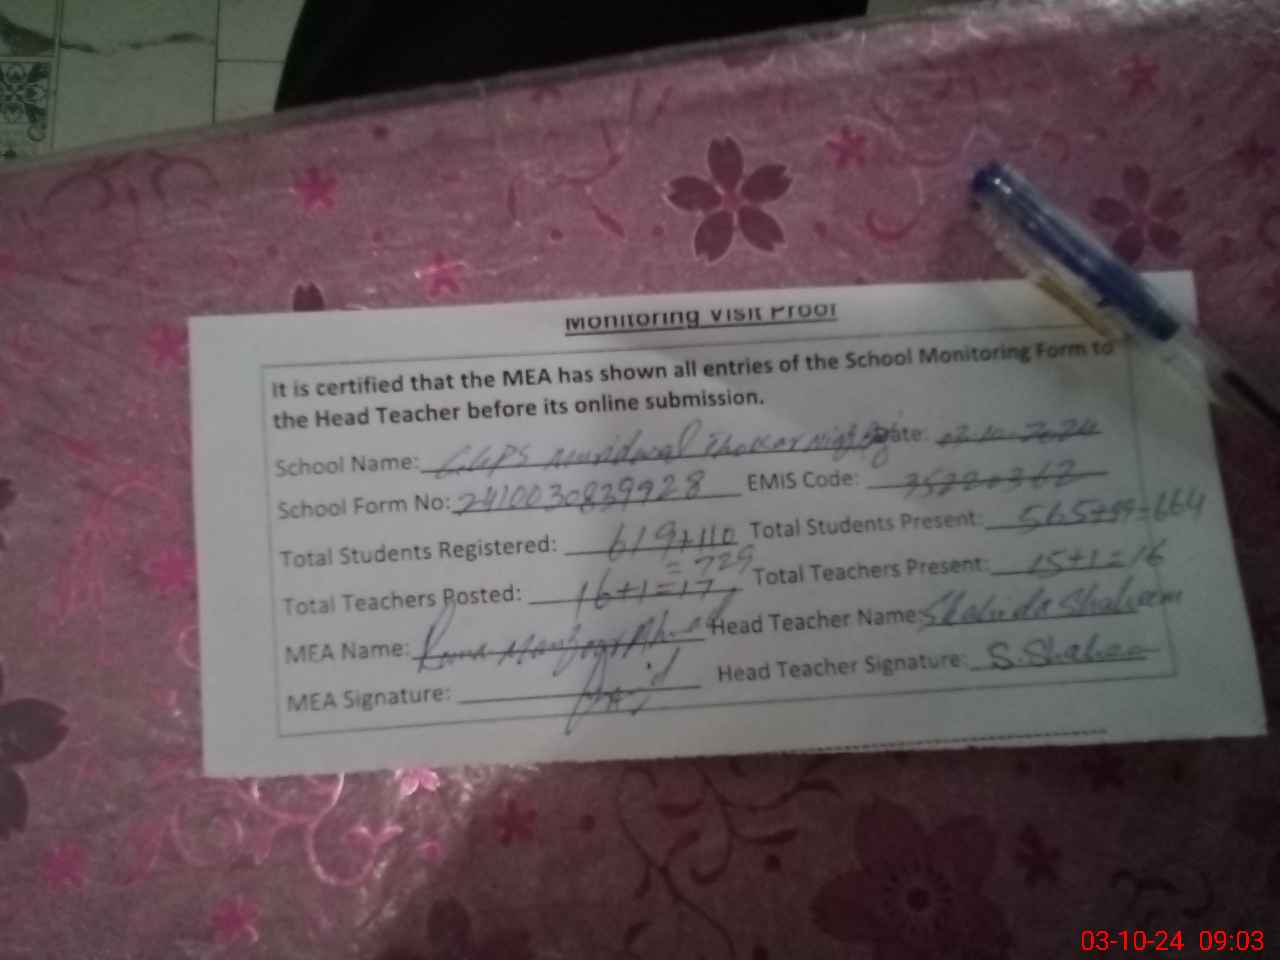 Monitoring Visit Proof
It is certified that the MEA has shown all entries of the School Monitoring Form to
the Head Teacher before its online submission.
School Name: Date: 02-10-2024
School Form No: 2410030839928 EMIS Code:
Total Students Registered: 619+110 = 729 Total Students Present: 565+99=664
Total Teachers Posted: 16+1=17 Total Teachers Present: 15+1=16
MEA Name: Head Teacher Name: Shahida Shaheen
MEA Signature: Head Teacher Signature: S.Shaheen
03-10-24 09:03